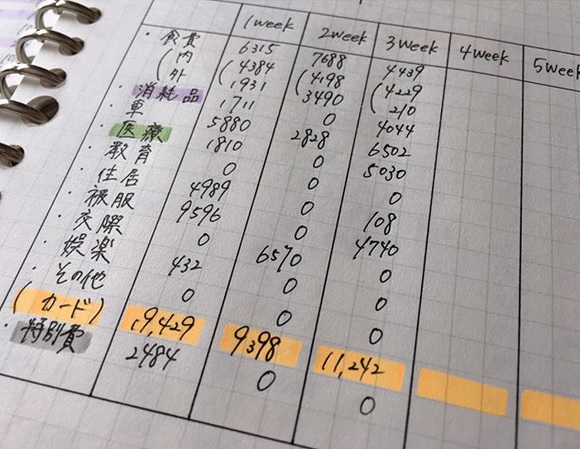 1week 2week 3week 4week 5week
・食費 6315 7688 4439
(内 (4384 (4198 (4229
外 1931 3490 210
・消耗品 1711 0 4044
・車 5880 2828 6502
・医療 1810 0 5030
・教育 0 0 0
・住居 4989 0 108
・被服 9596 0 4740
・交際 0 6570 0
・娯楽 432 0 0
・その他 0 0 0
(カード) 19,429 9398 11,242
・特別費 2484 0 0